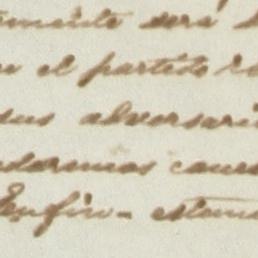 mente será
el partido
sus adversari
daremos caus
En fin - estam